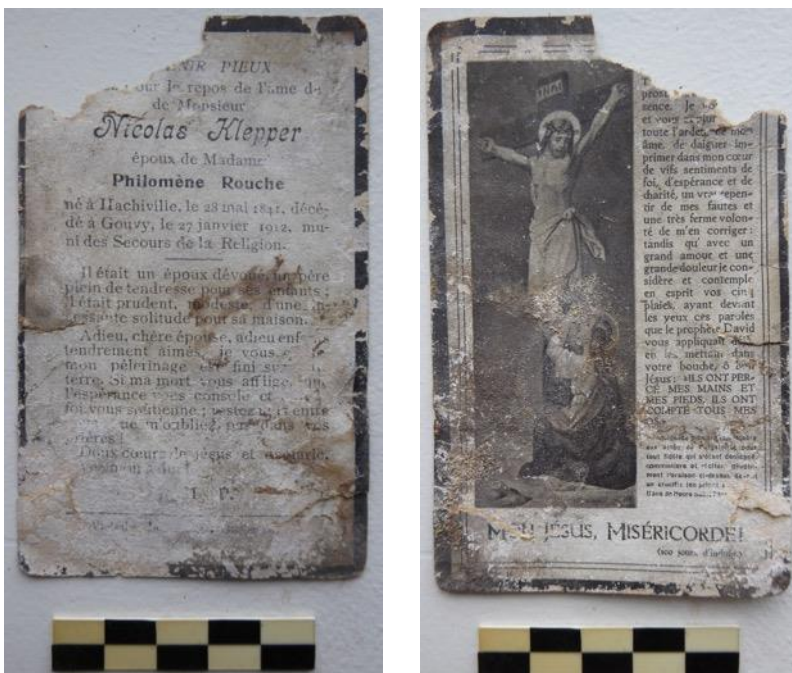 PIEUX
pour le repos de l'âme de
de Monsieur
Nicolas Klepper
époux de Madame
Philomène Rouche
né à Hachiville, le 28 mai 1841, décé-
dé à Gouvy, le 27 janvier 1912, mu-
ni des Secours de la Religion.
Il était un époux dévoué, un père
plein de tendresse pour ses enfants ;
il était prudent, modeste, d'une
solitude pour sa maison.
Adieu, chère épouse, adieu
tendrement aimés, je vous
mon pèlerinage est fini sur
terre. Si ma mort vous afflige, que
l'espérance vous console et
foi vous soutienne ; restez
m'oubliez pas dans vos
prières !
Doux cœurs de Jésus et
INRI
sence. Je
et vous
toute l'ardeur de mon
âme, de daigner im-
primer dans mon cœur
de vifs sentiments de
foi, d'espérance et de
charité, un vrai repen-
tir de mes fautes et
une très ferme volon-
té de m'en corriger :
tandis qu'avec un
grand amour et une
grande douleur je con-
sidère et contemple
en esprit vos cinq
plaies, ayant devant
les yeux ces paroles
que le prophète David
vous appliquait
en les mettant dans
votre bouche, ô bon
Jésus : «ILS ONT PER-
CÉ MES MAINS ET
MES PIEDS, ILS ONT
COMPTÉ TOUS MES
tout fidèle qui s'étant confessé,
MON JÉSUS, MISÉRICORDE !
jours d'indulg.)